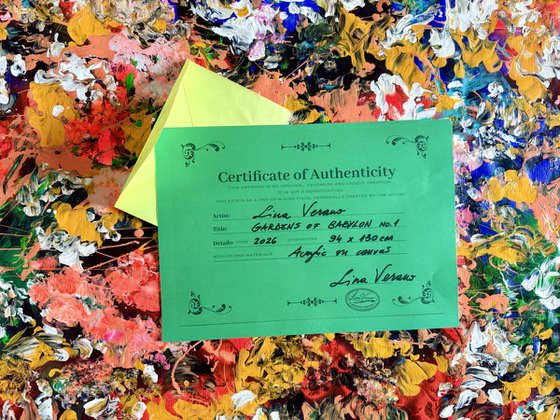 Certificate of Authenticity
THIS ARTWORK IS AN ORIGINAL, HANDMADE AND UNIQUE CREATION.
IT IS NOT A REPRODUCTION
AND EXISTS AS A ONE-OF-A-KIND PIECE, PERSONALLY CREATED BY THE ARTIST.
Artist: Lina Verano
Title: GARDENS OF BABYLON No.1
Details: YEAR 2026 DIMENSIONS 94 x 130 cm
MEDIUM AND MATERIALS: Acrylic on canvas
Lina Verano
Lina Verano